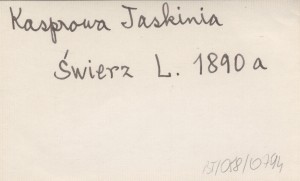 Kasprowa Jaskinia
Świerz L. 1890 a
15/088/0794